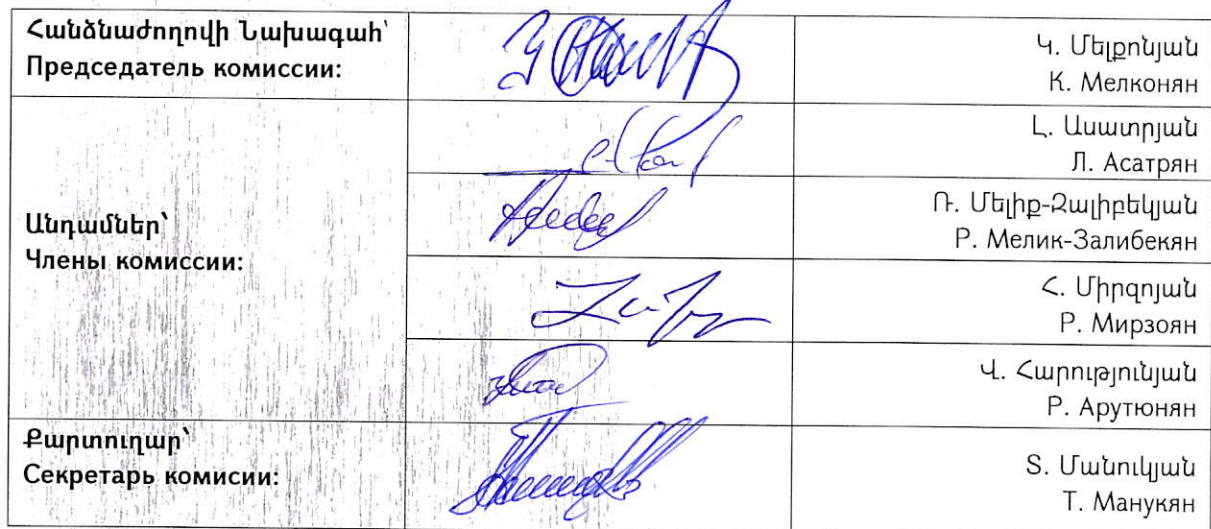 Հանձնաժողովի Նախագահ՝
Председатель комиссии:
Կ. Մելքոնյան
К. Мелконян
Լ. Ասատրյան
Л. Асатрян
Անդամներ՝
Члены комиссии:
Ռ. Մելիք-Զալիբեկյան
Р. Мелик-Залибекян
Հ. Միրզոյան
Р. Мирзоян
Վ. Հարությունյան
Р. Арутюнян
Քարտուղար՝
Секретарь комисии:
Տ. Մանուկյան
Т. Манукян